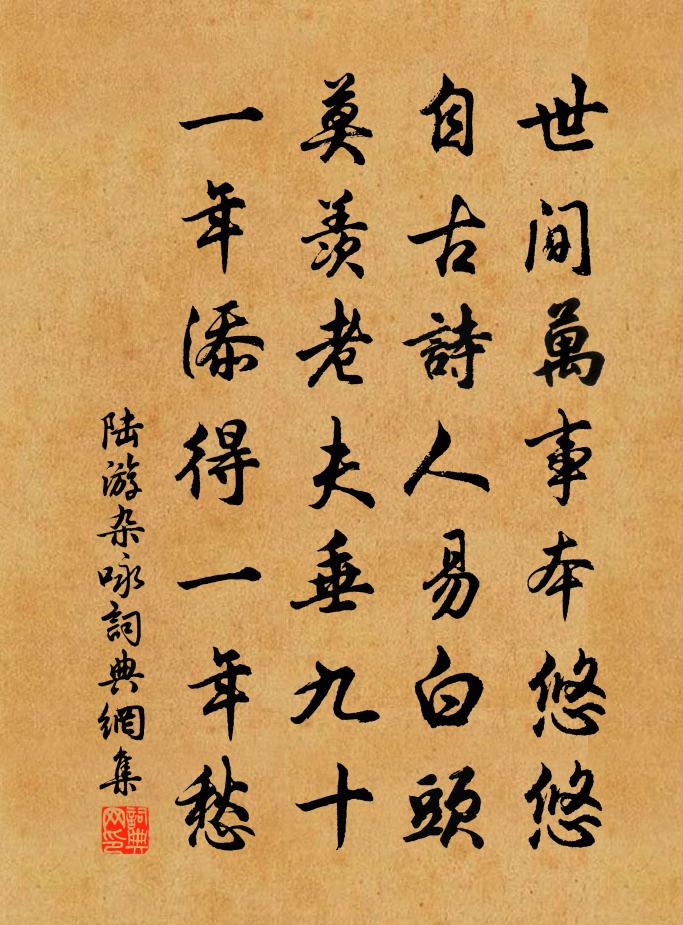 世間萬事本悠悠
自古詩人易白頭
莫羨老夫垂九十
一年添得一年愁
陆游杂咏詞典網集
詞典网印